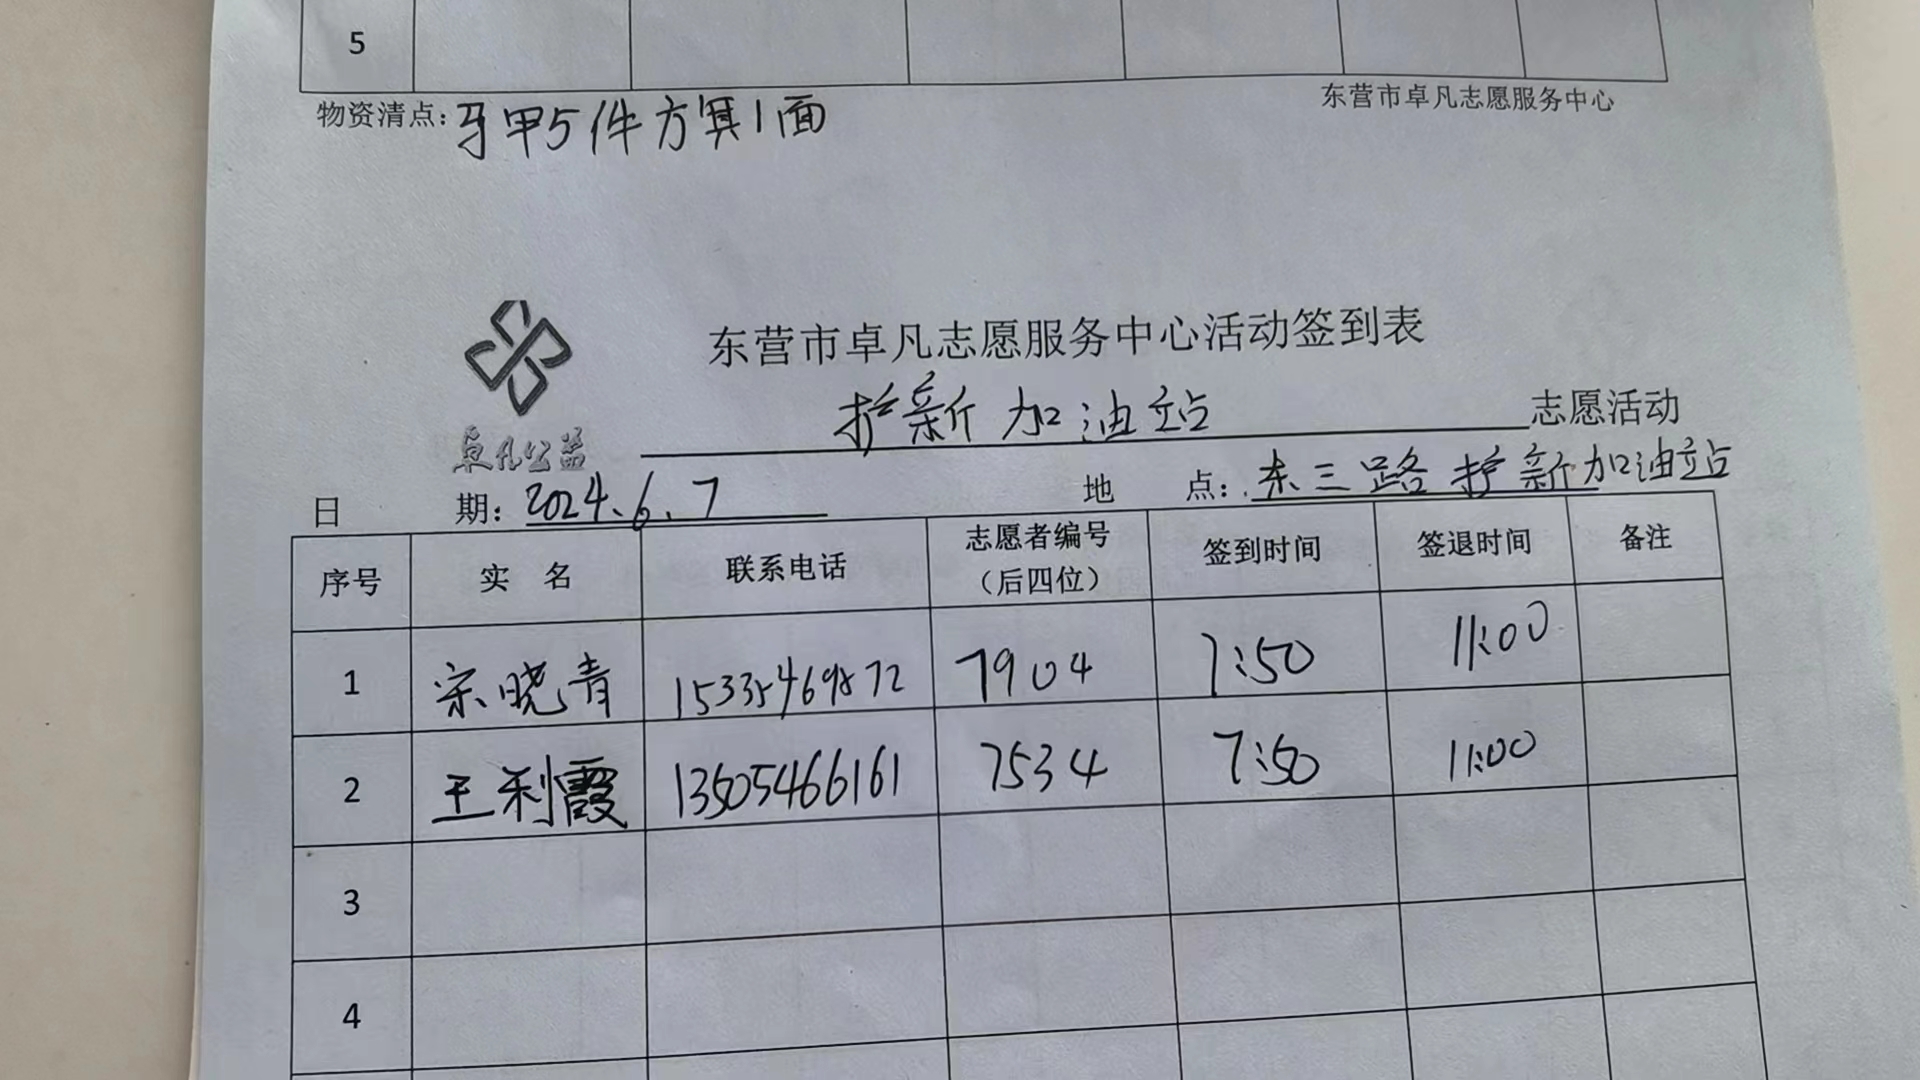 5
东营市卓凡志愿服务中心
物资清点: 马甲5件 方箕1面
东营市卓凡志愿服务中心活动签到表
护新加油站 志愿活动
卓凡公益
日 期: 2024.6.7 地 点: 东三路护新加油站
序号 实 名 联系电话 志愿者编号（后四位） 签到时间 签退时间 备注
1 宋晓青 15335469872 7904 7:50 11:00
2 王利霞 13505466161 7534 7:50 11:00
3
4